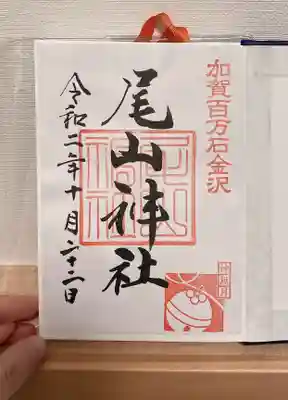 加賀百万石金沢
尾山神社
令和二年十月二十二日
神無月